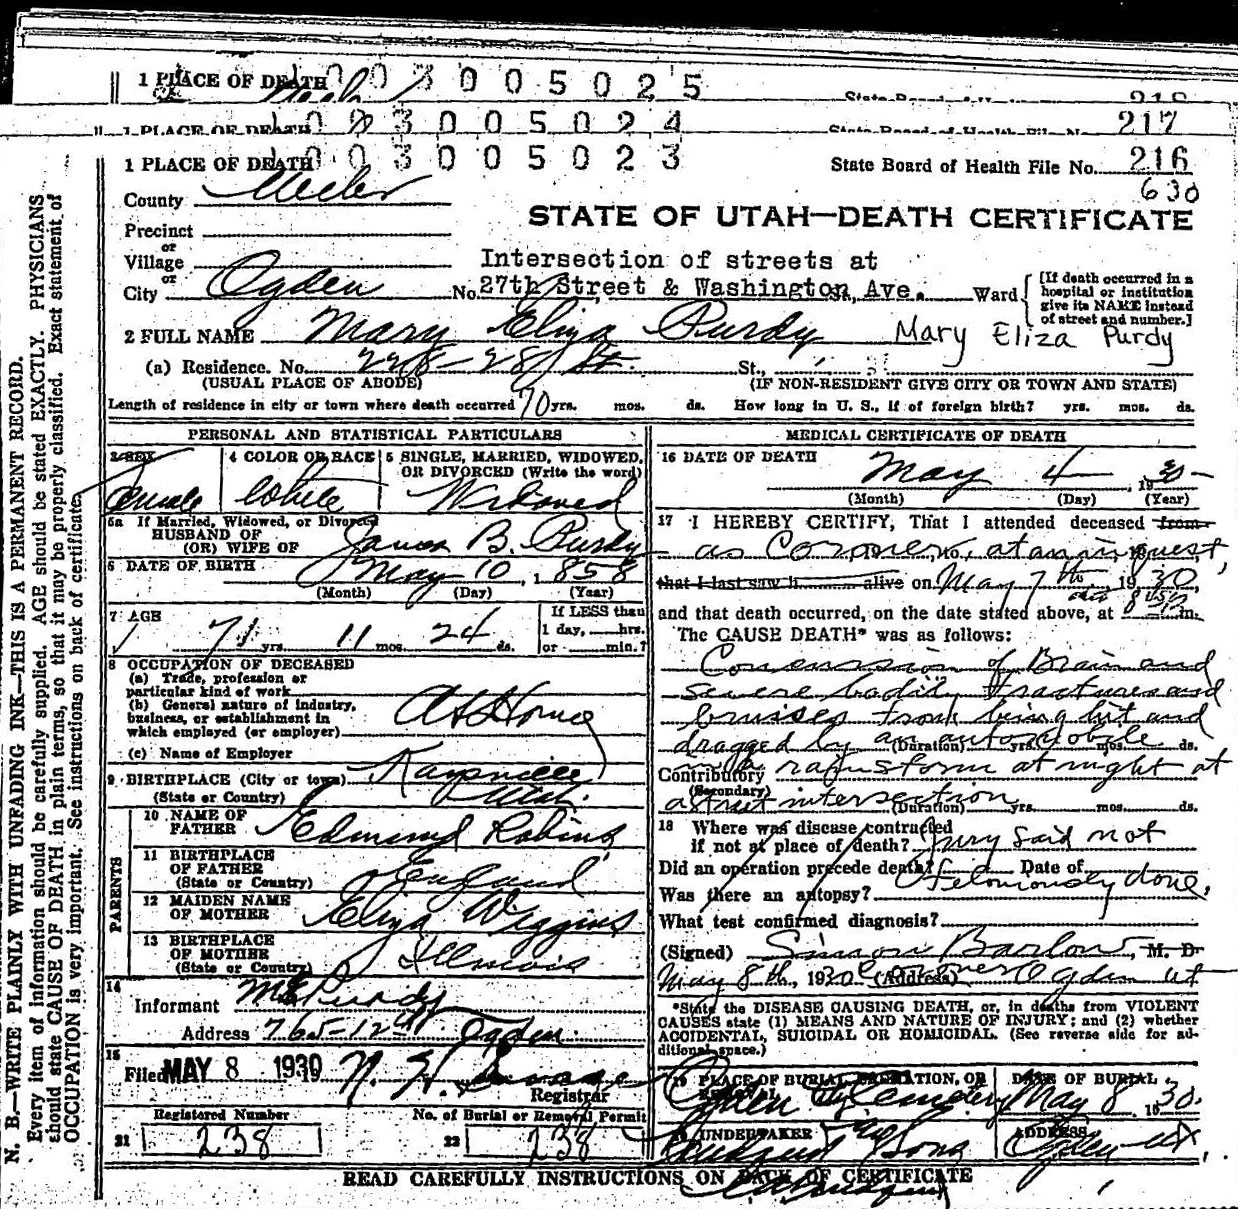 1 PLACE OF DEATH 003005025
State Board of Health File No. 218
1 PLACE OF DEATH 003005024
State Board of Health File No. 217
1 PLACE OF DEATH 003005023
State Board of Health File No. 216
630
County Weber
STATE OF UTAH—DEATH CERTIFICATE
Precinct
or
Village
or
City Ogden
Intersection of streets at
No. 27th Street & Washington Ave. St., Ward
[If death occurred in a
hospital or institution
give its NAME instead
of street and number.]
2 FULL NAME Mary Eliza Purdy Mary Eliza Purdy
(a) Residence. No. 228-28 St. St.,
(USUAL PLACE OF ABODE) (IF NON-RESIDENT GIVE CITY OR TOWN AND STATE)
Length of residence in city or town where death occurred 70 yrs. mos. ds. How long in U. S., if of foreign birth? yrs. mos. ds.
PERSONAL AND STATISTICAL PARTICULARS
3 SEX Female
4 COLOR OR RACE White
5 SINGLE, MARRIED, WIDOWED,
OR DIVORCED (Write the word)
Widowed
5a If Married, Widowed, or Divorced
HUSBAND OF
(OR) WIFE OF James B. Purdy
6 DATE OF BIRTH May 10, 1858
(Month) (Day) (Year)
7 AGE
71 yrs. 11 mos. 24 ds.
If LESS than
1 day, hrs.
or min.?
8 OCCUPATION OF DECEASED
(a) Trade, profession or
particular kind of work
(b) General nature of industry,
business, or establishment in
which employed (or employer)
At Home
(c) Name of Employer
9 BIRTHPLACE (City or town) Kaysville
(State or Country) Utah.
PARENTS
10 NAME OF
FATHER Edmund Robins
11 BIRTHPLACE
OF FATHER
(State or Country) England
12 MAIDEN NAME
OF MOTHER Eliza Wiggins
13 BIRTHPLACE
OF MOTHER
(State or Country) Illinois
14
Informant Purdy
Address 765-12th Ogden.
15
Filed MAY 8 1930
Registrar
Registered Number
21 238
No. of Burial or Removal Permit
22 238
MEDICAL CERTIFICATE OF DEATH
16 DATE OF DEATH May 4, 1930
(Month) (Day) (Year)
17 I HEREBY CERTIFY, That I attended deceased from
as Coroner, at an inquest,
that I last saw h alive on May 7th 1930,
and that death occurred, on the date stated above, at m.
The CAUSE DEATH* was as follows:
Concussion of Brain and
severe bodily fractures and
bruises from being hit and
dragged by an automobile
(Duration) yrs. mos. ds.
Contributory rainstorm at night at
(Secondary)
a street intersection
(Duration) yrs. mos. ds.
18 Where was disease contracted
if not at place of death? Jury said not
Did an operation precede death? Date of
feloniously done.
Was there an autopsy?
What test confirmed diagnosis?
(Signed) Simon Barlow, M. D.
May 8th, 1930 (Address) Coroner Ogden Ut
*State the DISEASE CAUSING DEATH, or, in deaths from VIOLENT
CAUSES state (1) MEANS AND NATURE OF INJURY; and (2) whether
ACCIDENTAL, SUICIDAL OR HOMICIDAL. (See reverse side for ad-
ditional space.)
19 PLACE OF BURIAL, CREMATION, OR
Ogden Cemetery
DATE OF BURIAL
May 8, 1930.
UNDERTAKER
& Sons
ADDRESS
Ogden Ut.
READ CAREFULLY INSTRUCTIONS ON BACK OF CERTIFICATE
N. B.—WRITE PLAINLY WITH UNFADING INK—THIS IS A PERMANENT RECORD.
Every item of information should be carefully supplied. AGE should be stated EXACTLY. PHYSICIANS
should state CAUSE OF DEATH in plain terms, so that it may be properly classified. Exact statement of
OCCUPATION is very important. See instructions on back of certificate.